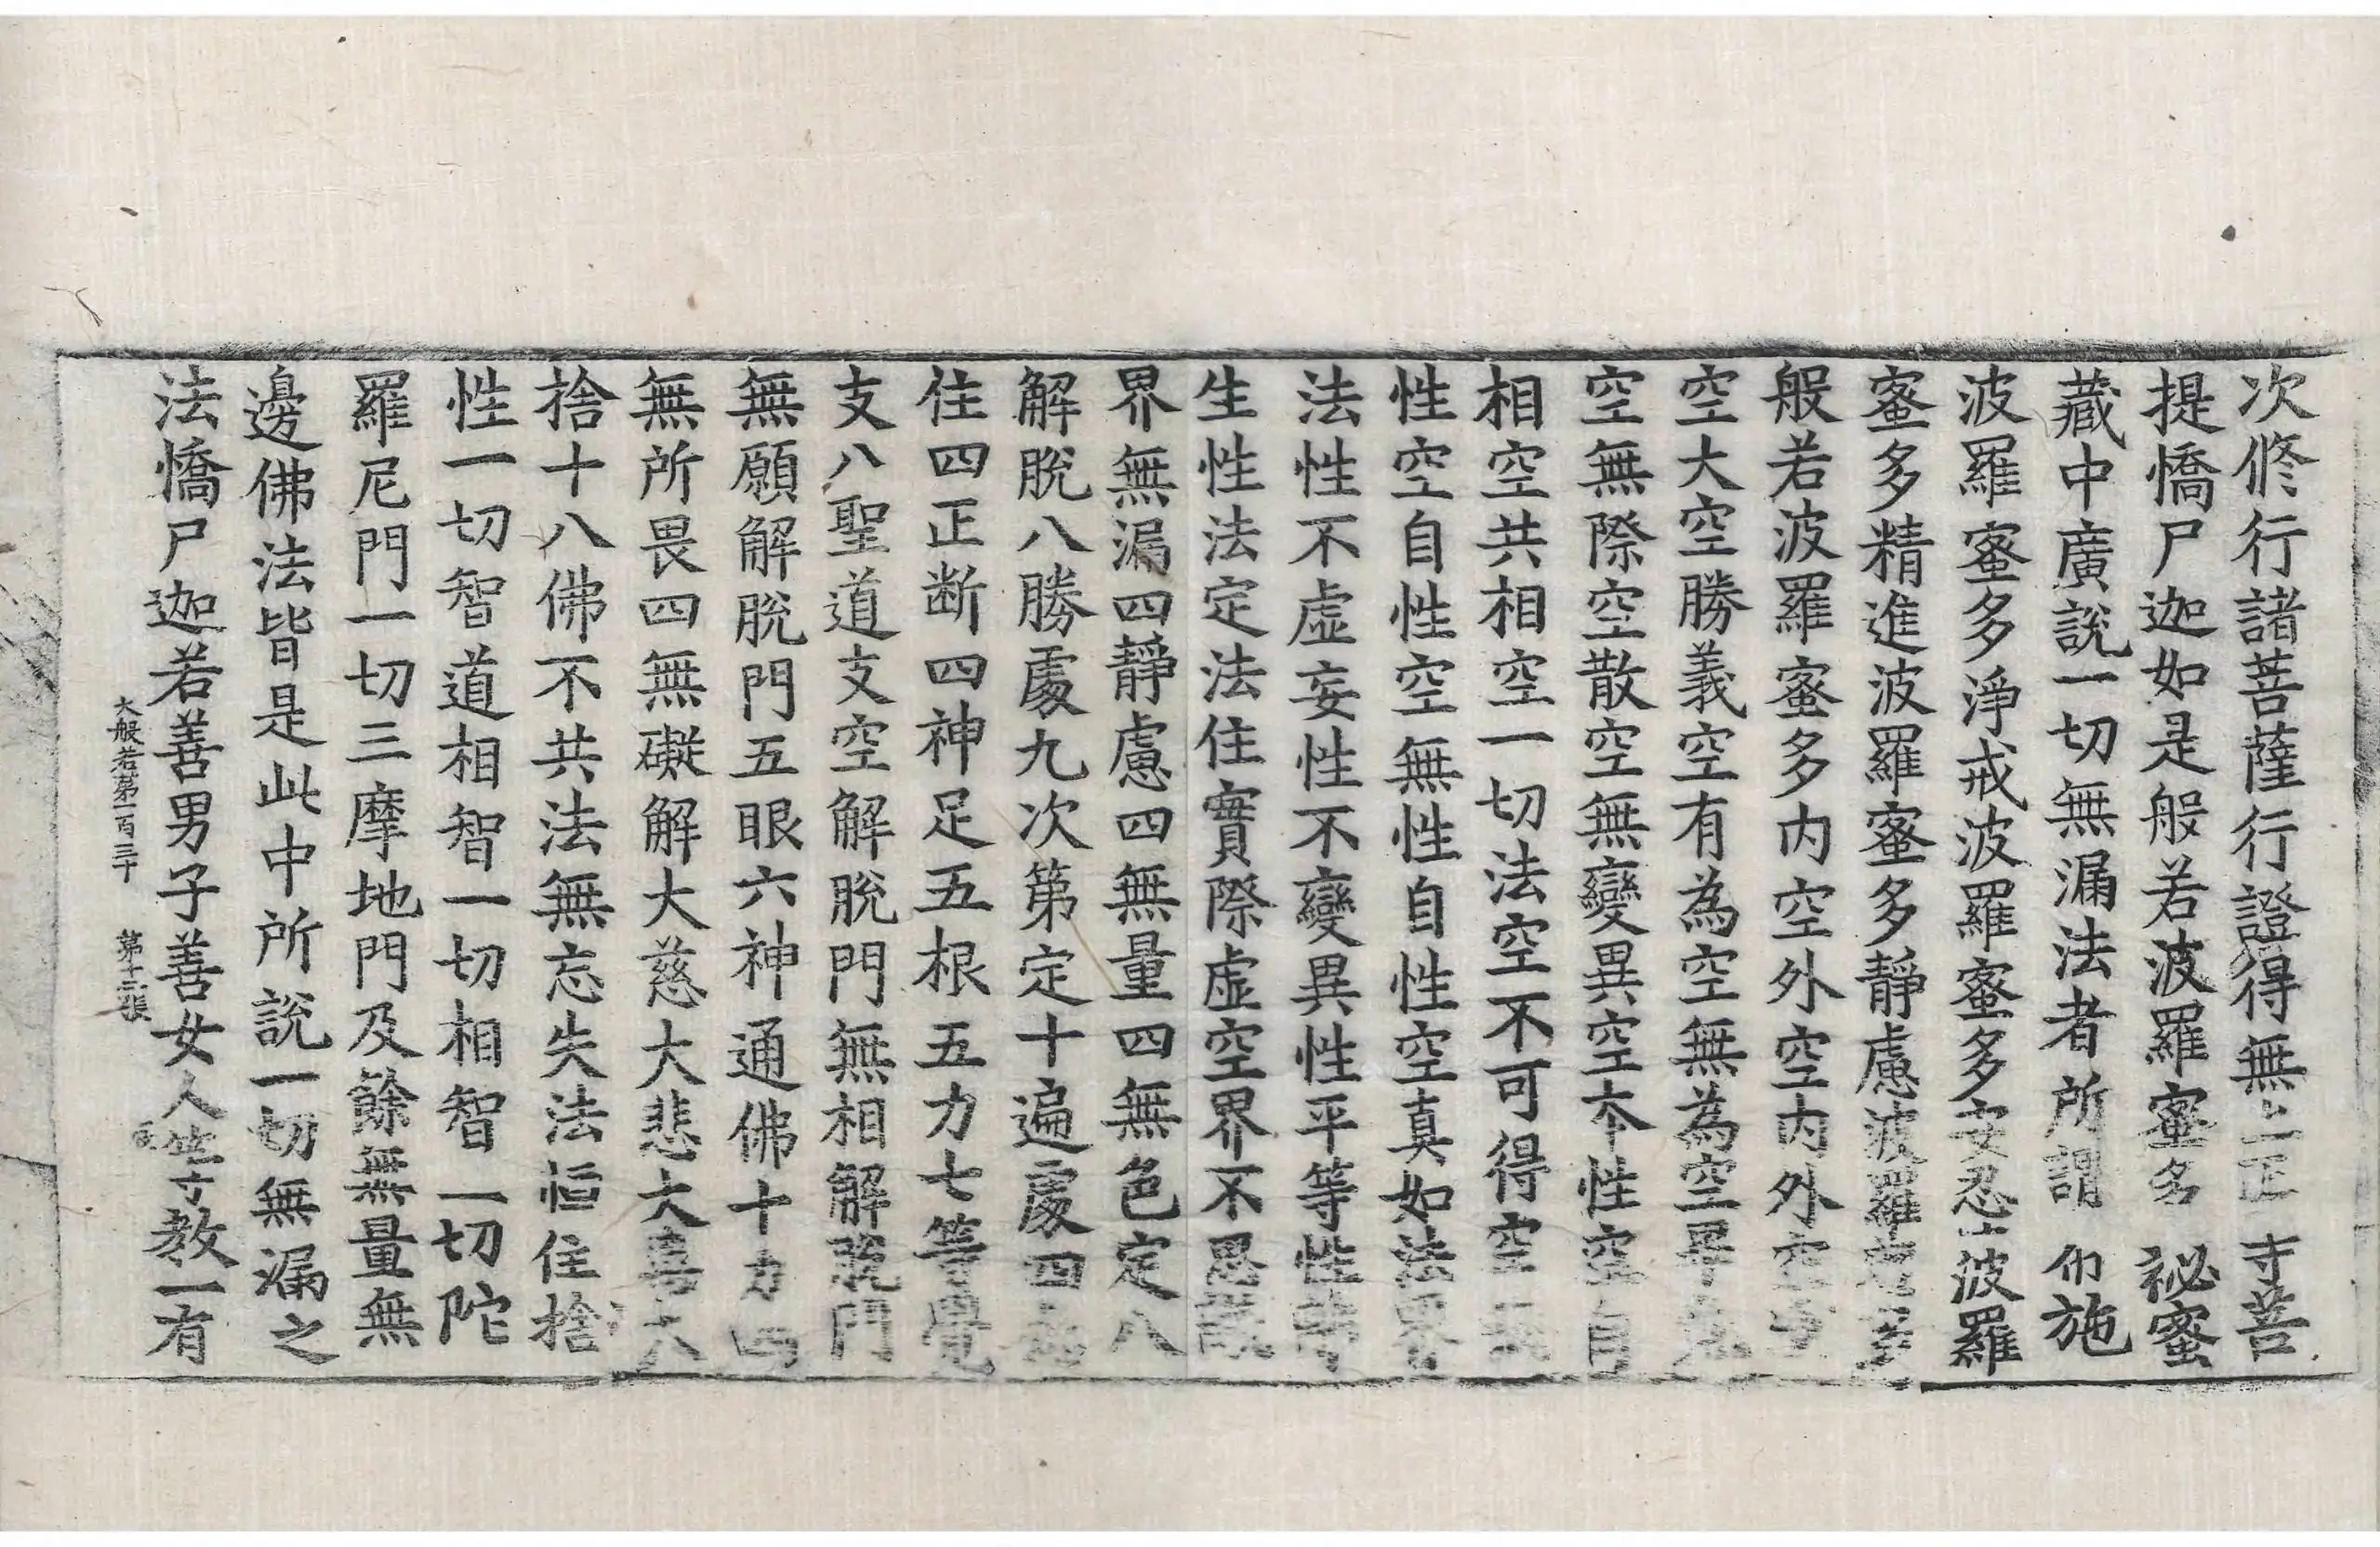 次修行諸菩薩行證得無上正寺菩
提憍尸迦如是般若波羅蜜多祕蜜
藏中廣說一切無漏法者所謂布施
波羅蜜多淨戒波羅蜜多安忍波羅
蜜多精進波羅蜜多靜慮波羅
般若波羅蜜多內空外空內外空
空大空勝義空有為空無為空畢
空無際空空散空無變異空本性空自
相空共相空一切法空不可得空無
性空自性空無性自性空真如法界
法性不虛妄性不變異性平等性離
生性法定法住實際虛空界不思議
界無漏四靜慮四無量四無色定八
解脫八勝處九次第定十遍處四
住四正断四神足五根五力七等覺
支八聖道支空解脫門無相解脫門
無願解脫門五眼六神通佛十力四
無所畏四無礙解大慈大悲大喜大
捨十八佛不共法無忘失法恒住捨
性一切智道相智一切相智一切陀
羅尼門一切三摩地門及餘無量無
邊佛法皆是此中所說一切無漏之
法憍尸迦若善男子善女人等教一有
大般若第一百三十　第十三張